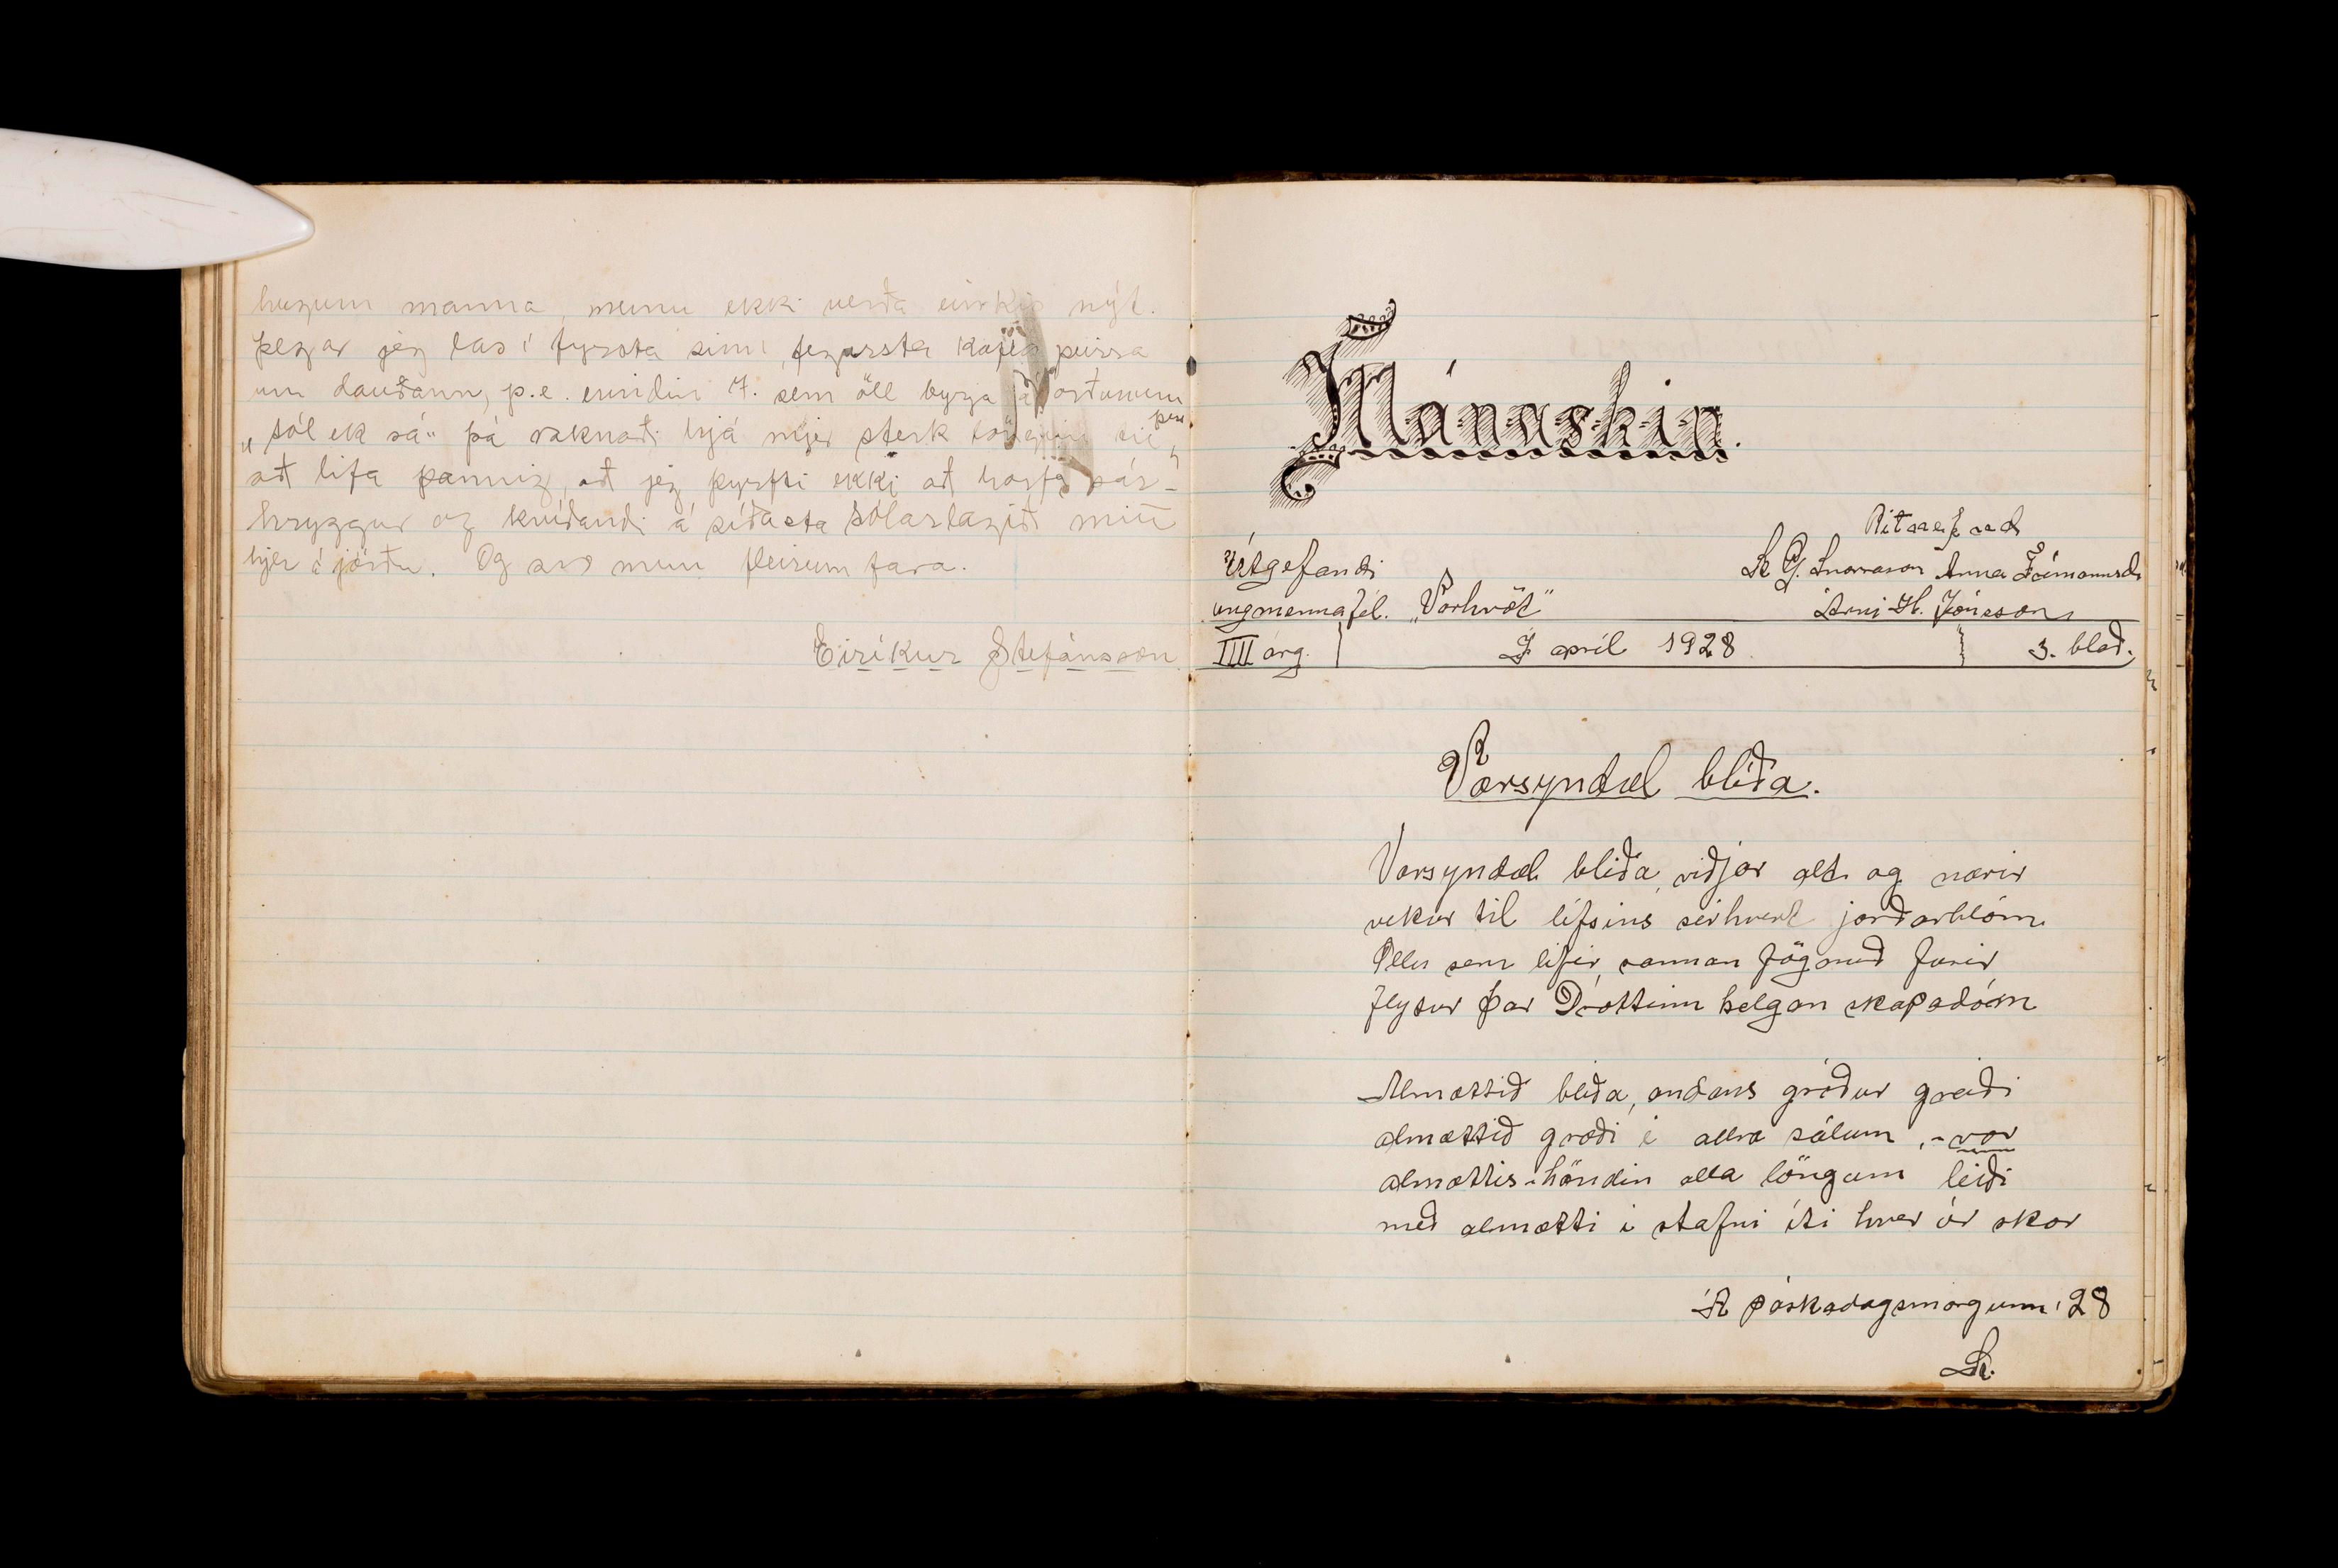 hugum manna, munu ekki verða einkis nýt.
þegar jeg las í fyrsta sinni fegursta kafla þeirra
um dauðann, þ.e. erindin 7. sem öll byrja á orðunum
„sól ek sá“ þá vaknaði hjá mjer sterk löngun til þess
að lifa þannig, að jeg þyrfti ekki að horfa sár-
hryggur og kvíðandi á síðasta sólarlagið mitt
hjer á jörðu. Og svo mun fleirum fara.
Eiríkur Stefánsson
Mánaskin.
Útgefandi
ungmennafél. „Vorhvöt“
Sk G. Snorrason Anna
Árni H. Jónsson
IIII árg.
apríl 1928
3. blað.
Vorsyndæl blíða.
Vorsyndæl blíða, viðjar alt og nærir
vekur til lífsins sérhvert jarðarblóm
Öllu sem lifir, sannan fögnuð færir
flytur þar Drottinn helgan skapadóm
Almættið blíða, andans gróður greiði
almættið græði í allra sálum, - vor
almættis-höndin alla löngum leiði
með almætti í stafni íti hver úr skor
Á páskadagsmorgunn '28
Sk.